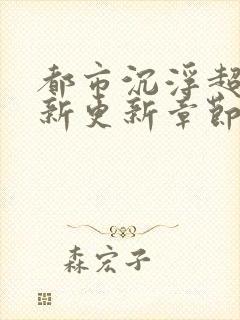 都市沉浮超
新更新章節
森宏子